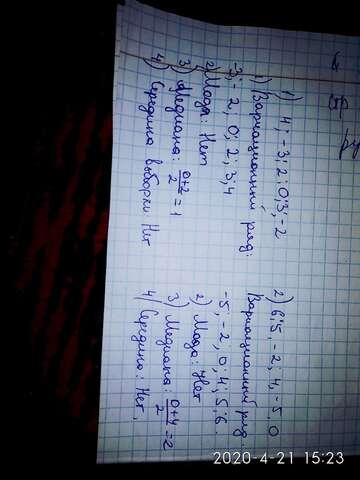 1) 4; -3; 2; 0; 3; -2
1) Вариационный ряд:
-3; -2; 0; 2; 3; 4
2) Мода: Нет
3) Медиана: 0+2/2 = 1
4) Середина выборки: Нет
2) 6; 5; -2; 4; -5; 0
Вариационный ряд:
-5; -2; 0; 4; 5; 6.
2) Мода: Нет
3) Медиана 0+4/2 = 2
4) Середина: Нет.
2020-4-21 15:23